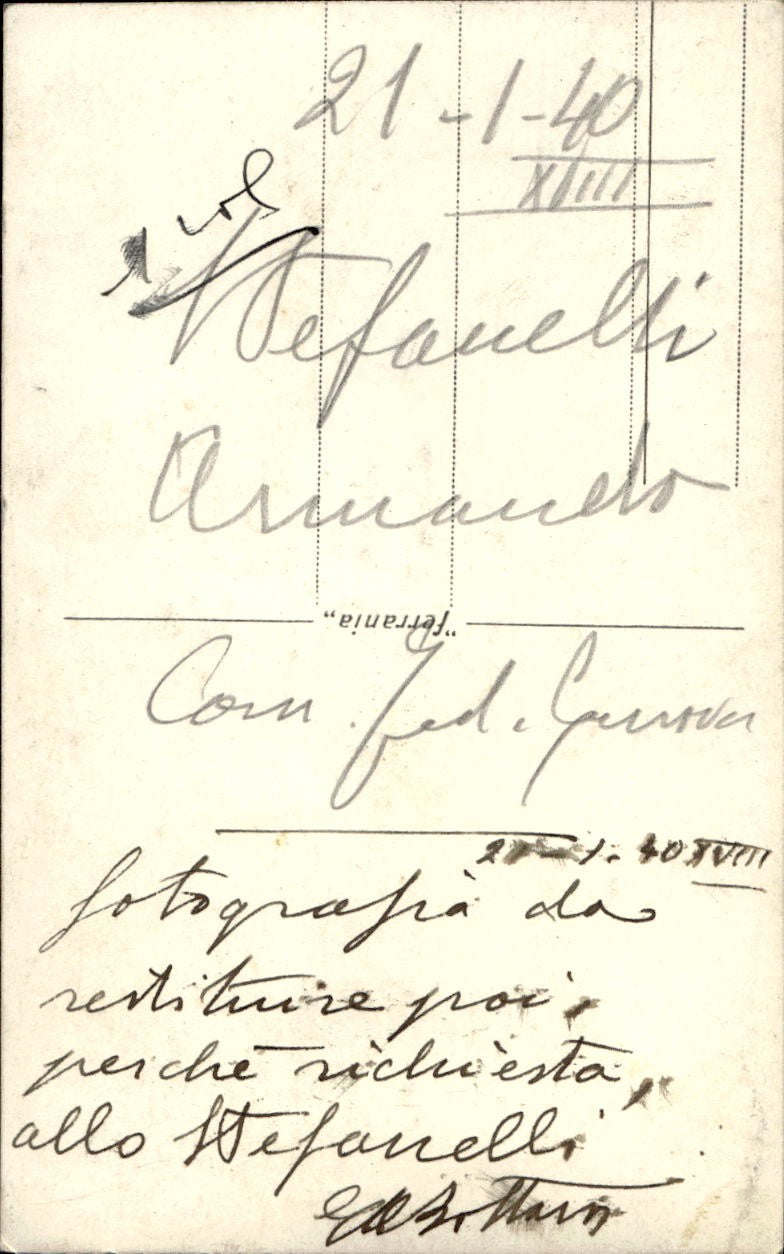 21-1-40
XVIII
Stefanelli
Armando
"ferrania"
Com. Fed. Genova
21-1.40 XVIII
fotografia da
restituire poi,
perchè richiesta,
allo Stefanelli